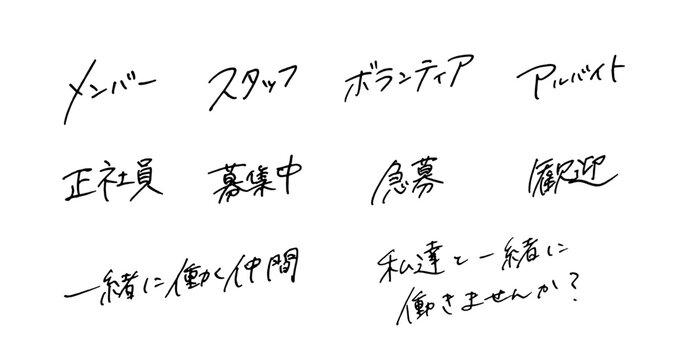 メンバー スタッフ ボランティア アルバイト
正社員 募集中 急募 歓迎
一緒に働く仲間
私達と一緒に
働きませんか?